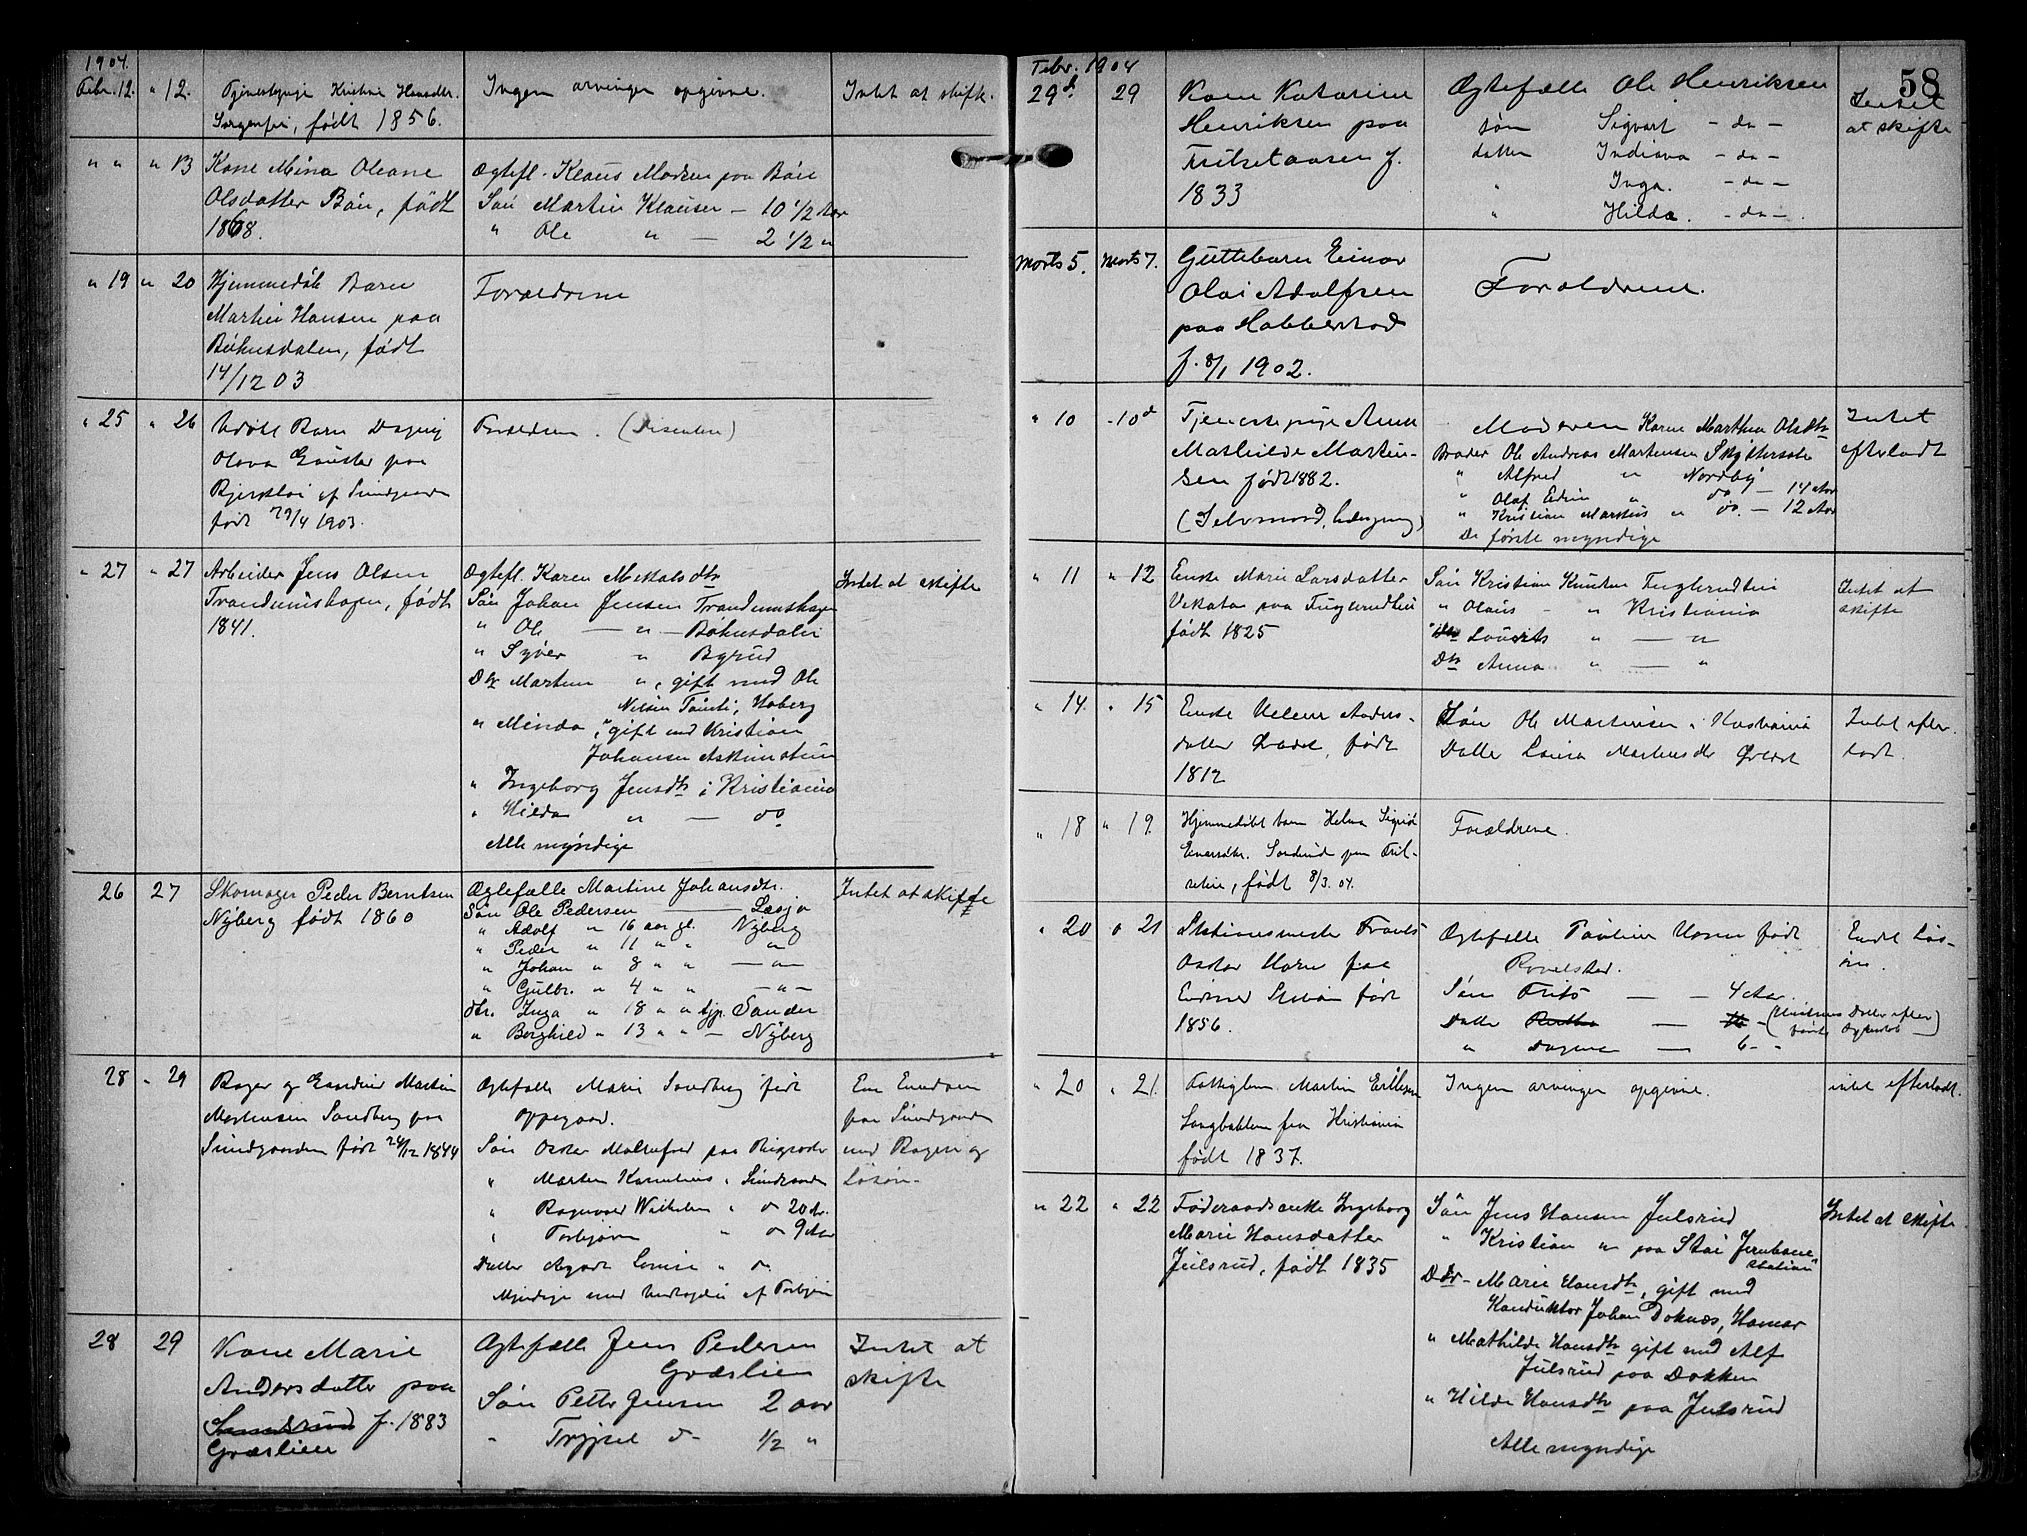 1904.
Febr. 12. " 12. Kristine Hansdtr.
Sorgenfri, født 1856.
Ingen arvinger opgivne.
Intet at skifte.
" " " 13 Kone Mina Oleane
Olsdatter Bøn, født
1868.
Ægtefl. Klaus Madsen paa Bøn
Søn Martin Klausen — 10 1/2 Aar
" Ole " — 2 1/2 "
" 19 " 20 Hjemmedøbt Barn
Martin Hansen paa
Bøhnsdalen, født
14/12 03
Forældrene
" 25 " 26 Udøbt Barn Dagny
Olava paa
af Sundgaarden
født 29/4 1903.
Forældrene. (Dissentere)
" 27 " 27 Arbeider Jens Olsen
Trandumshagen, født
1841.
Ægtefl. Karen Mikkelsdtr
Søn Johan Jensen Trandumshagen
" Ole — " — Bøhnsdalen
" Syver " Byrud
Dtr Martine ", gift med Ole
Nilsen Hoberg
" Minda ", gift med Kristian
Johansen
" Ingeborg Jensdtr i Kristiania
" Hilda " — do
Alle myndige
Intet at skifte
26 27 Skomager Peder Berntsen
Nyberg født 1860
Ægtefælle Martine Johansdtr.
Søn Ole Pedersen — Lesja
" Adolf " 16 aar gl. Nyberg
" Peder " 11 " " "
" Johan " 8 " " — " —
" Gulbr. " 4 " " — " —
dtr. Inga " 18 " " tjp. Sander
" Borghild " 13 " " — Nyberg
Intet at skifte
28 " 29 Bager og Gaardeier Martin
Martinsen Sandberg paa
Sundgaarden født 24/12 1844
Ægtefælle Marie Sandberg født
Oppegaard.
Søn Oskar Malmfred paa
" Morten Kornelius " Sundgaarden
" Ragnvald Wilhelm " do 20 Ar.
" Torbjørn " do 9 Aar
Datter Agate Lovise " do
Myndige med Undtagelse af Torbjørn
En Eiendom
paa Sundgaarden
med Bageri og
Løsøre.
28 29 Kone Marie
Andersdatter paa
f. 1883
Græslien
Ægtefælle Jens Pedersen
Græslien
Søn Petter Jensen 2 aar
" Trygve do 1/2 "
Intet at
skifte
58
Febr. 1904
29d. 29 Kone Katarine
Henriksen paa
Trilsetaasen f.
1833
Ægtefælle Ole Henriksen
søn Sigvart — do —
datter Indiana — do —
" Inga. — do —
" Hilda. — do —
Intet
at skifte
Marts 5. Marts 7. Guttebarn Einar
Olai Adolfsen
paa Habberstad
f. 8/1 1902.
Forældrene.
" 10 " 10d Tjenestepige Anna
Mathilde Martin-
sen født 1882.
(Selvmord, hængning)
Moderen Karen Marthea Olsdtr
Broder Ole Andreas Martinsen
" Alfred " Nordby
" Olaf Edvin " do — 14 Aar
" Kristian Markus " do. — 12 Aar
De første myndige
Intet
efterladt
" 11 " 12 Enke Marie Larsdatter
paa Fuglerudtein
født 1825
Søn Kristian Knutsen Fuglerudtein
" Olaus — " Kristiania
" Laurits " — "
Dtr Anna " — "
Intet at
skifte
" 14. " 15 Enke Helene Anders-
datter født
1812
Søn Ole Martinsen i Kristiania
Datter Lovisa Martinsdtr
Intet efter-
ladt.
" 18 " 19. Hjemmedøbt barn Helma Sigrid
Einarsdtr. paa Tril-
setein, født 8/3. 04.
Forældrene.
" 20 " 21 Stationsmester Frants
Oskar Horn paa
Eidsvold Station født
1856.
Ægtefælle Pauline Horn født
Søn Frits — — 4 Aar.
Datter Bertha — (Hustrues Datter efter
første Ægteskab —)
" Dagmar — 6 - "
Endel Løs-
øre.
" 20 " 21. Fattiglem Martin Eriksen
Langbakken fra Kristiania
født 1837.
Ingen arvinger opgivne.
intet efterladt.
" 22 " 22 Føderaadsenke Ingeborg
Marie Hansdatter
Julsrud, født 1835
Søn Jens Hansen Julsrud
" Kristian " paa Stai Jernbane-
station
Dtr — Marie Hansdtr, gift med
Konduktør Johan Hamar
" Mathilde Hansdtr gift med Alf
Julsrud paa Dokken
" Hilde Hansdtr paa Julsrud
Alle myndige
Intet at skifte